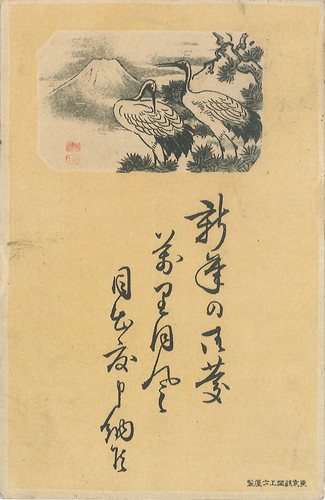 新年の御慶
萬里同風
目出度申納候
東京銀座上方屋製